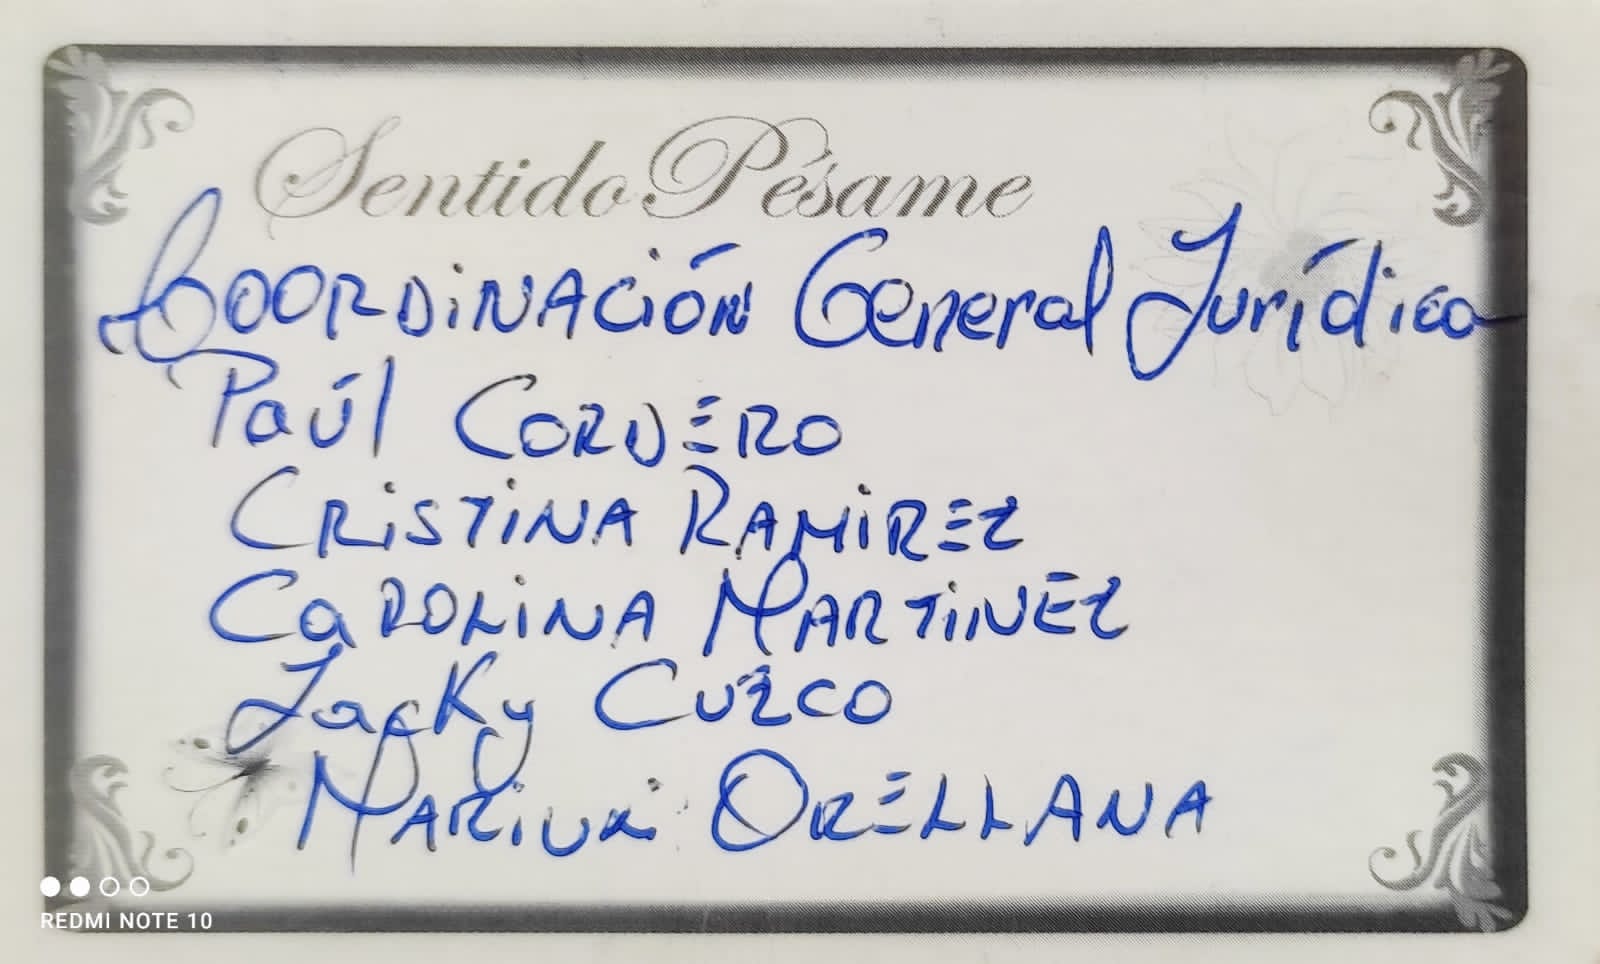 Sentido Pésame
Coordinación General Jurídica
Paúl Cordero
Cristina Ramirez
Carolina Martinez
Jacky Cuzco
Mariuxi Orellana
REDMI NOTE 10